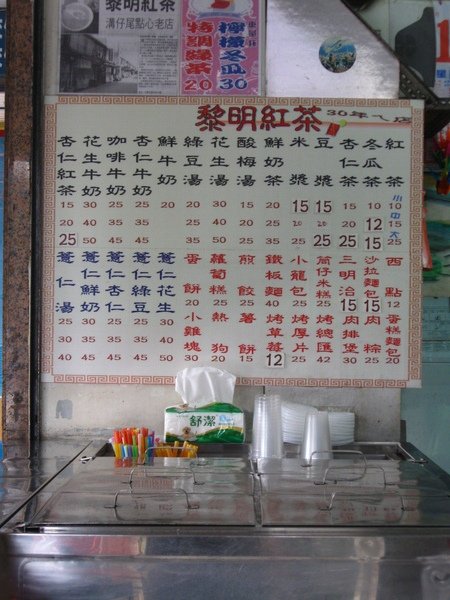 黎明紅茶
溝仔尾點心老店
特調綠茶 20
檸檬冬瓜 30
黎明紅茶 30年老店
紅茶 小10 中15 大25
冬瓜茶 10 12 15
杏仁茶 15 20 25
豆漿 15 20 25
米漿 15 20
鮮奶茶 20 25 35
酸梅湯 15 20 25
花生湯 30 40 50
綠豆湯 20 25 35
鮮牛奶 20
杏仁牛奶 30 35 45
咖啡牛奶 30 35 45
花生牛奶 30 40 50
杏仁紅茶 15 20 25
西點 12
蛋糕麵包 20
沙拉麵包 15
肉粽 25
三明治 15
肉排堡 30
筒仔米糕 25
烤總匯 35
小籠包
烤厚片 25
鐵板麵
烤草莓 12
煎餃 25
薯餅 15
蘿蔔糕 25
熱狗 20
蛋餅 20
小雞塊 30
薏仁花生 30 40 50
薏仁綠豆 25 35 45
薏仁杏仁 30 35 45
薏仁鮮奶 30 35 45
薏仁湯 25 30 40
舒潔